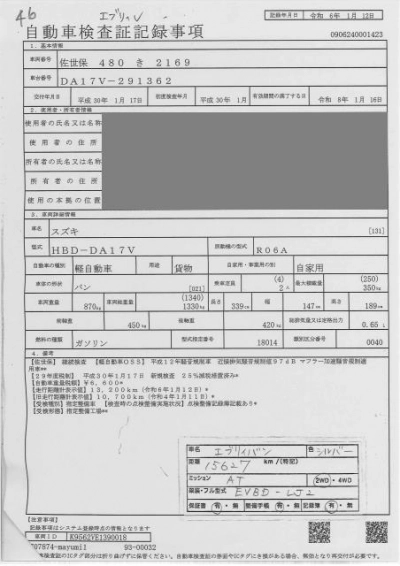 46 エブリィV
自動車検査証記録事項
記録年月日 令和 6年 1月 12日
0906240001423
1. 基本情報
車両番号 佐世保 480 き 2169
車台番号 DA17V-291362
交付年月日 平成 30年 1月 17日 初度検査年月 平成 30年 1月 有効期間の満了する日 令和 8年 1月 16日
2. 使用者・所有者情報
使用者の氏名又は名称
使用者の住所
所有者の氏名又は名称
所有者の住所
使用の本拠の位置
3. 車両詳細情報
車名 スズキ [131]
型式 HBD-DA17V 原動機の型式 R06A
自動車の種別 軽自動車 用途 貨物 自家用・事業用の別 自家用
車体の形状 バン [021] 乗車定員 (4) 2人 最大積載量 (250) 350kg
車両重量 870kg 車両総重量 (1340) 1330kg 長さ 339cm 幅 147cm 高さ 189cm
前軸重 450kg 後軸重 420kg 総排気量又は定格出力 0.65 L
燃料の種類 ガソリン 型式指定番号 18014 類別区分番号 0040
4. 備考
[佐世保] 継続検査 [軽自動車OSS] 平成12年騒音規制車 近接排気騒音規制値97dB マフラー加速騒音規制適用車**
[29年度税制] 平成30年1月17日 新規検査 25%減税措置済み*
[自動車重量税額] ¥6,600*
[走行距離計表示値] 13,200km (令和6年1月12日)*
[旧走行距離計表示値] 10,700km (令和4年1月11日)*
[受検種別] 指定整備車 [検査時の点検整備実施状況] 点検整備記録簿記載あり*
[受検形態] 指定整備工場**
車名 エブリィバン 色 シルバー
距離 15627 km/(時記)
ミッション AT 2WD・4WD
型式・フル型式 EVBD-LJ2
保証書 有・無 整備手帳 有・無 記録簿 有・無
[注意事項]
記録事項はシステム登録時点の情報となります
車両ID K9562VE1390018
707874-mayumi1 93-00032